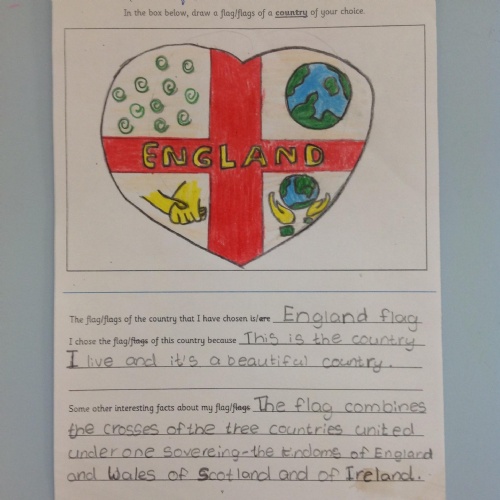 In the box below, draw a flag/flags of a country of your choice.
ENGLAND
The flag/flags of the country that I have chosen is/are England flag
I chose the flag/flags of this country because This is the country
I live and it's a beautiful country.
Some other interesting facts about my flag/flags The flag combines
the crosses of the tree countries united
under one sovereing-the kindoms of England
and Wales of Scotland and of Ireland.